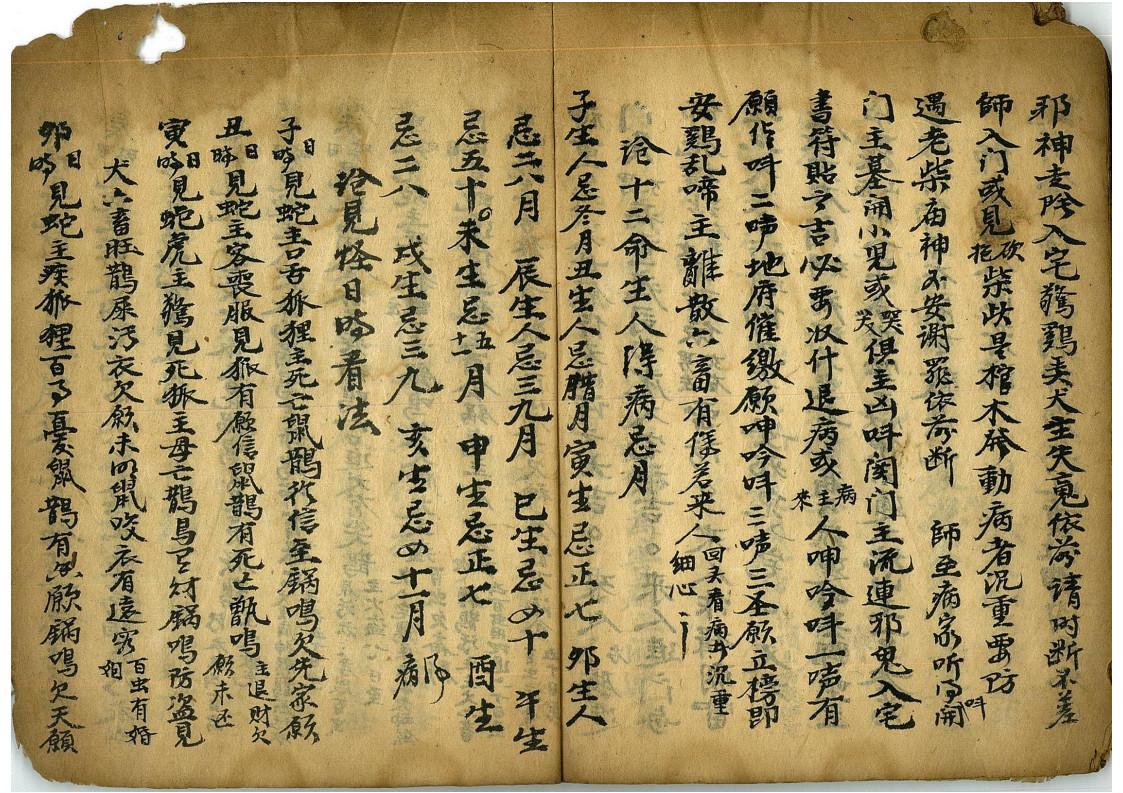 邪神走陰入宅驚鷄美犬主失䰟依前請時断不差
師入门或見砍拖柴此是棺木發動病者沉重要防
遇老柴庙神不安謝罪依前断 師至病家听得開叫
门主墓開小児或哭笑俱主凶叫関门主流連邪鬼入宅
書符貼之吉必要収什退病或病主來人呻吟叫一声有
願作叫二声地府催繳願呻吟叫三声三圣願立榜即
安鷄乱啼主離散六畜有傷若来人回头看病者沉重細心
门论十二命生人得病忌月
子生人忌冬月丑生人忌臘月寅生忌正七 夘生人
忌二八月 辰生人忌三九月 巳生忌四十 午生
忌五十。未生忌五十一月 申生忌正七 酉生
忌二八 戌生忌三九 亥生忌四十一月 病
论見怪日時看法
子日時見蛇主口舌狐狸主死亡鼠鵲行信至鍋鳴欠先家願
丑日時見蛇主客喪服見狐有願信鼠鵲有死亡甑鳴主退財欠願未还
寅日時見蛇虎主驚見死狐主母亡鵲鳥主財鍋鳴防盗見
犬六畜旺鵲屎污衣欠願未明鼠咬衣有遠客百虫有婚姻
夘日時見蛇主疾狐狸百事憂鼠鵲有願鍋鳴欠天願